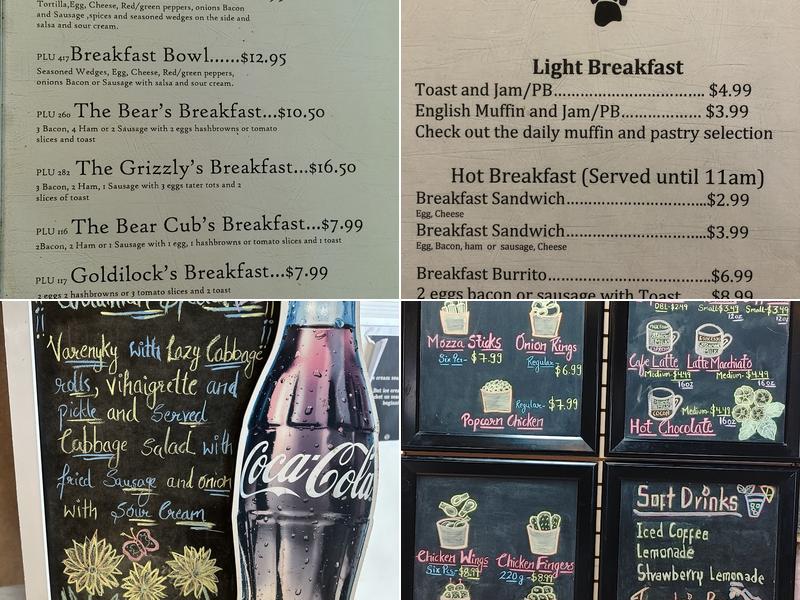 Tortilla,Egg, Cheese, Red/green peppers, onions Bacon
and Sausage ,spices and seasoned wedges on the side and
salsa and sour cream.
PLU 417 Breakfast Bowl......$12.95
Seasoned Wedges, Egg, Cheese, Red/green peppers,
onions Bacon or Sausage with salsa and sour cream.
PLU 260 The Bear's Breakfast...$10.50
3 Bacon, 4 Ham or 2 Sausage with 2 eggs hashbrowns or tomato
slices and toast
PLU 282 The Grizzly's Breakfast...$16.50
3 Bacon, 2 Ham, 1 Sausage with 3 eggs tater tots and 2
slices of toast
PLU 116 The Bear Cub's Breakfast...$7.99
2Bacon, 2 Ham or 1 Sausage with 1 egg, 1 hashbrowns or tomato slices and 1 toast
PLU 117 Goldilock's Breakfast...$7.99
2 eggs 2 hashbrowns or 3 tomato slices and 2 toast
Light Breakfast
Toast and Jam/PB.................................. $4.99
English Muffin and Jam/PB.................. $3.99
Check out the daily muffin and pastry selection
Hot Breakfast (Served until 11am)
Breakfast Sandwich................................$2.99
Egg, Cheese
Breakfast Sandwich................................$3.99
Egg, Bacon, ham or sausage, Cheese
Breakfast Burrito....................................$6.99
2 eggs bacon or sausage with Toast......$8.99
Varenyky with Lazy Cabbage
rolls, vihaigrette and
pickle and Served
Cabbage Salad with
fried Sausage and onion
with Sour Cream
Coca-Cola
Mozza Sticks
Six Pcs- $7.99
Onion Rings
Regular- $6.99
Regular- $7.99
Popcorn Chicken
DBL-$2.49 Small-$3.49 Small-$3.49
12oz 12oz
Cafe Latte Latte Macchiato
Midium-$4.49 Medium-$4.49
16oz 16oz
Medium-$4.49
16oz
Hot Chocolate
Chicken Wings
Six Pcs-$8.99
Chicken Fingers
220g-$8.99
Soft Drinks
Iced Coffee
Lemonade
Strawberry Lemonade